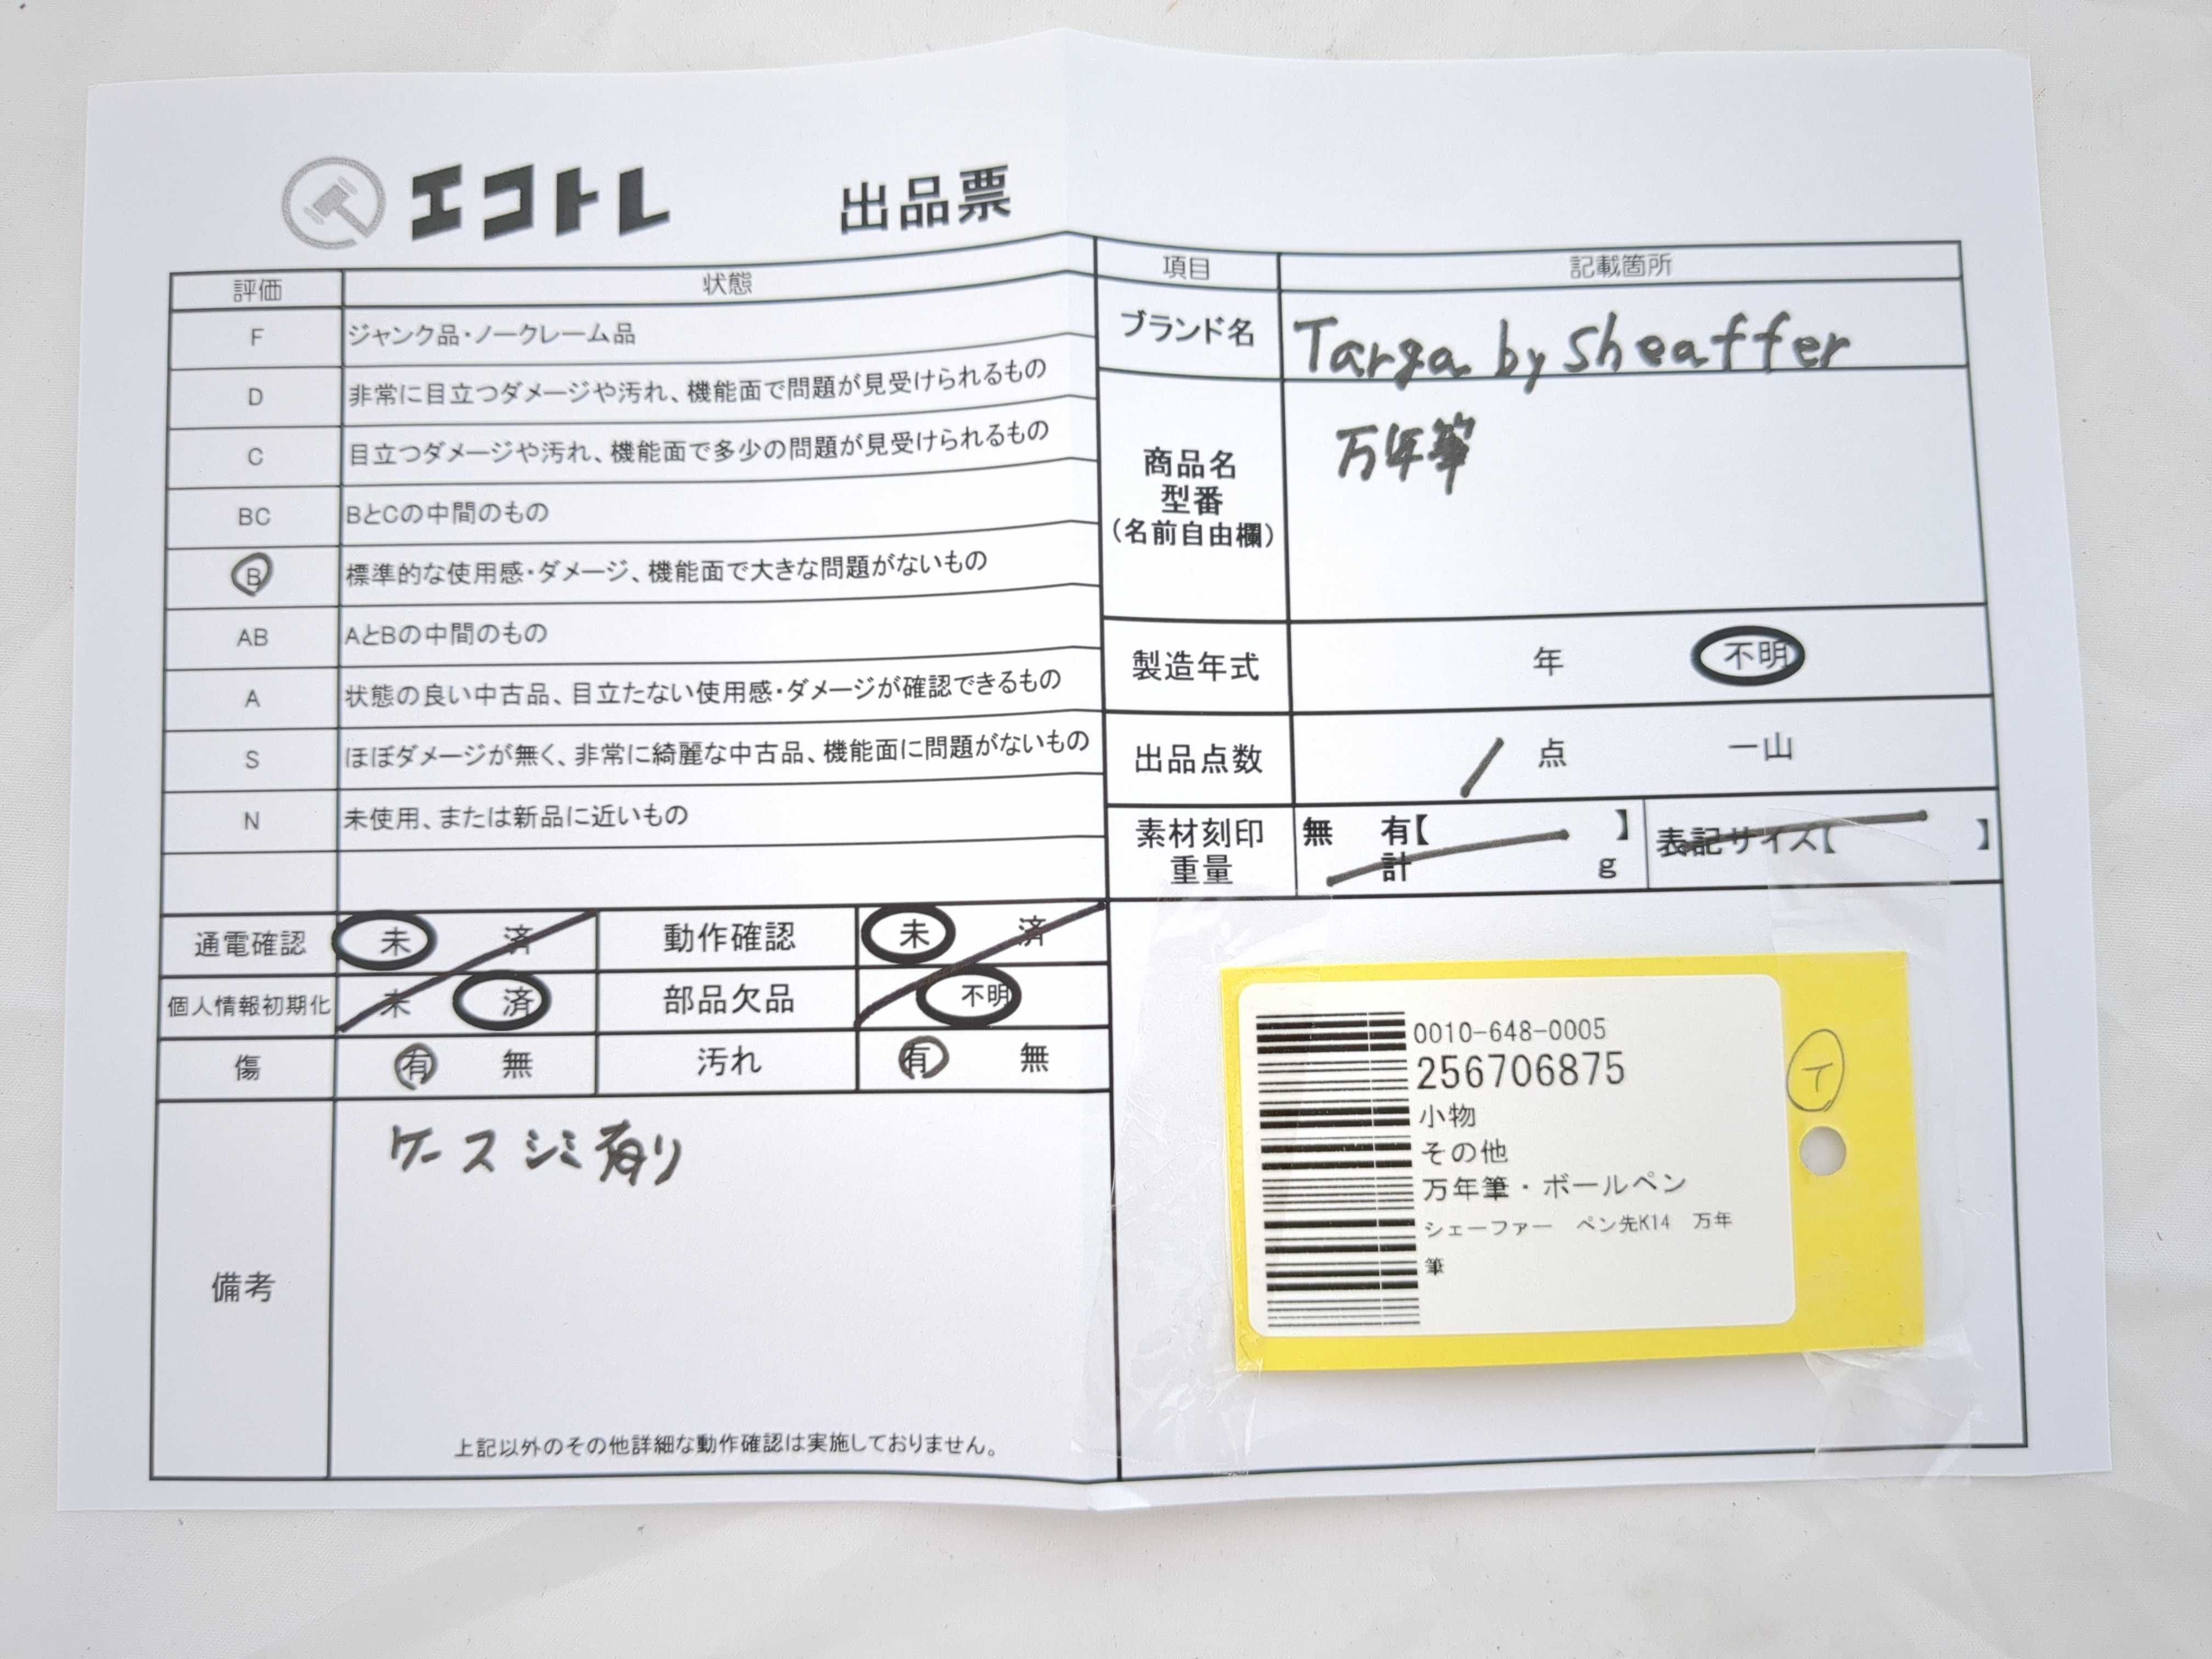 エコトレ 出品票
評価 状態
F ジャンク品・ノークレーム品
D 非常に目立つダメージや汚れ、機能面で問題が見受けられるもの
C 目立つダメージや汚れ、機能面で多少の問題が見受けられるもの
BC BとCの中間のもの
B 標準的な使用感・ダメージ、機能面で大きな問題がないもの
AB AとBの中間のもの
A 状態の良い中古品、目立たない使用感・ダメージが確認できるもの
S ほぼダメージが無く、非常に綺麗な中古品、機能面に問題がないもの
N 未使用、または新品に近いもの
通電確認 未 済 動作確認 未 済
個人情報初期化 未 済 部品欠品 不明
傷 有 無 汚れ 有 無
備考
ケースシミ有り
上記以外のその他詳細な動作確認は実施しておりません。
項目 記載箇所
ブランド名 Targa by Sheaffer
商品名
型番
(名前自由欄)
万年筆
製造年式 年 不明
出品点数 1 点 一山
素材刻印 無 有【 】 表記サイズ【 】
重量 計 g
0010-648-0005
256706875
小物
その他
万年筆・ボールペン
シェーファー ペン先K14 万年
筆
イ